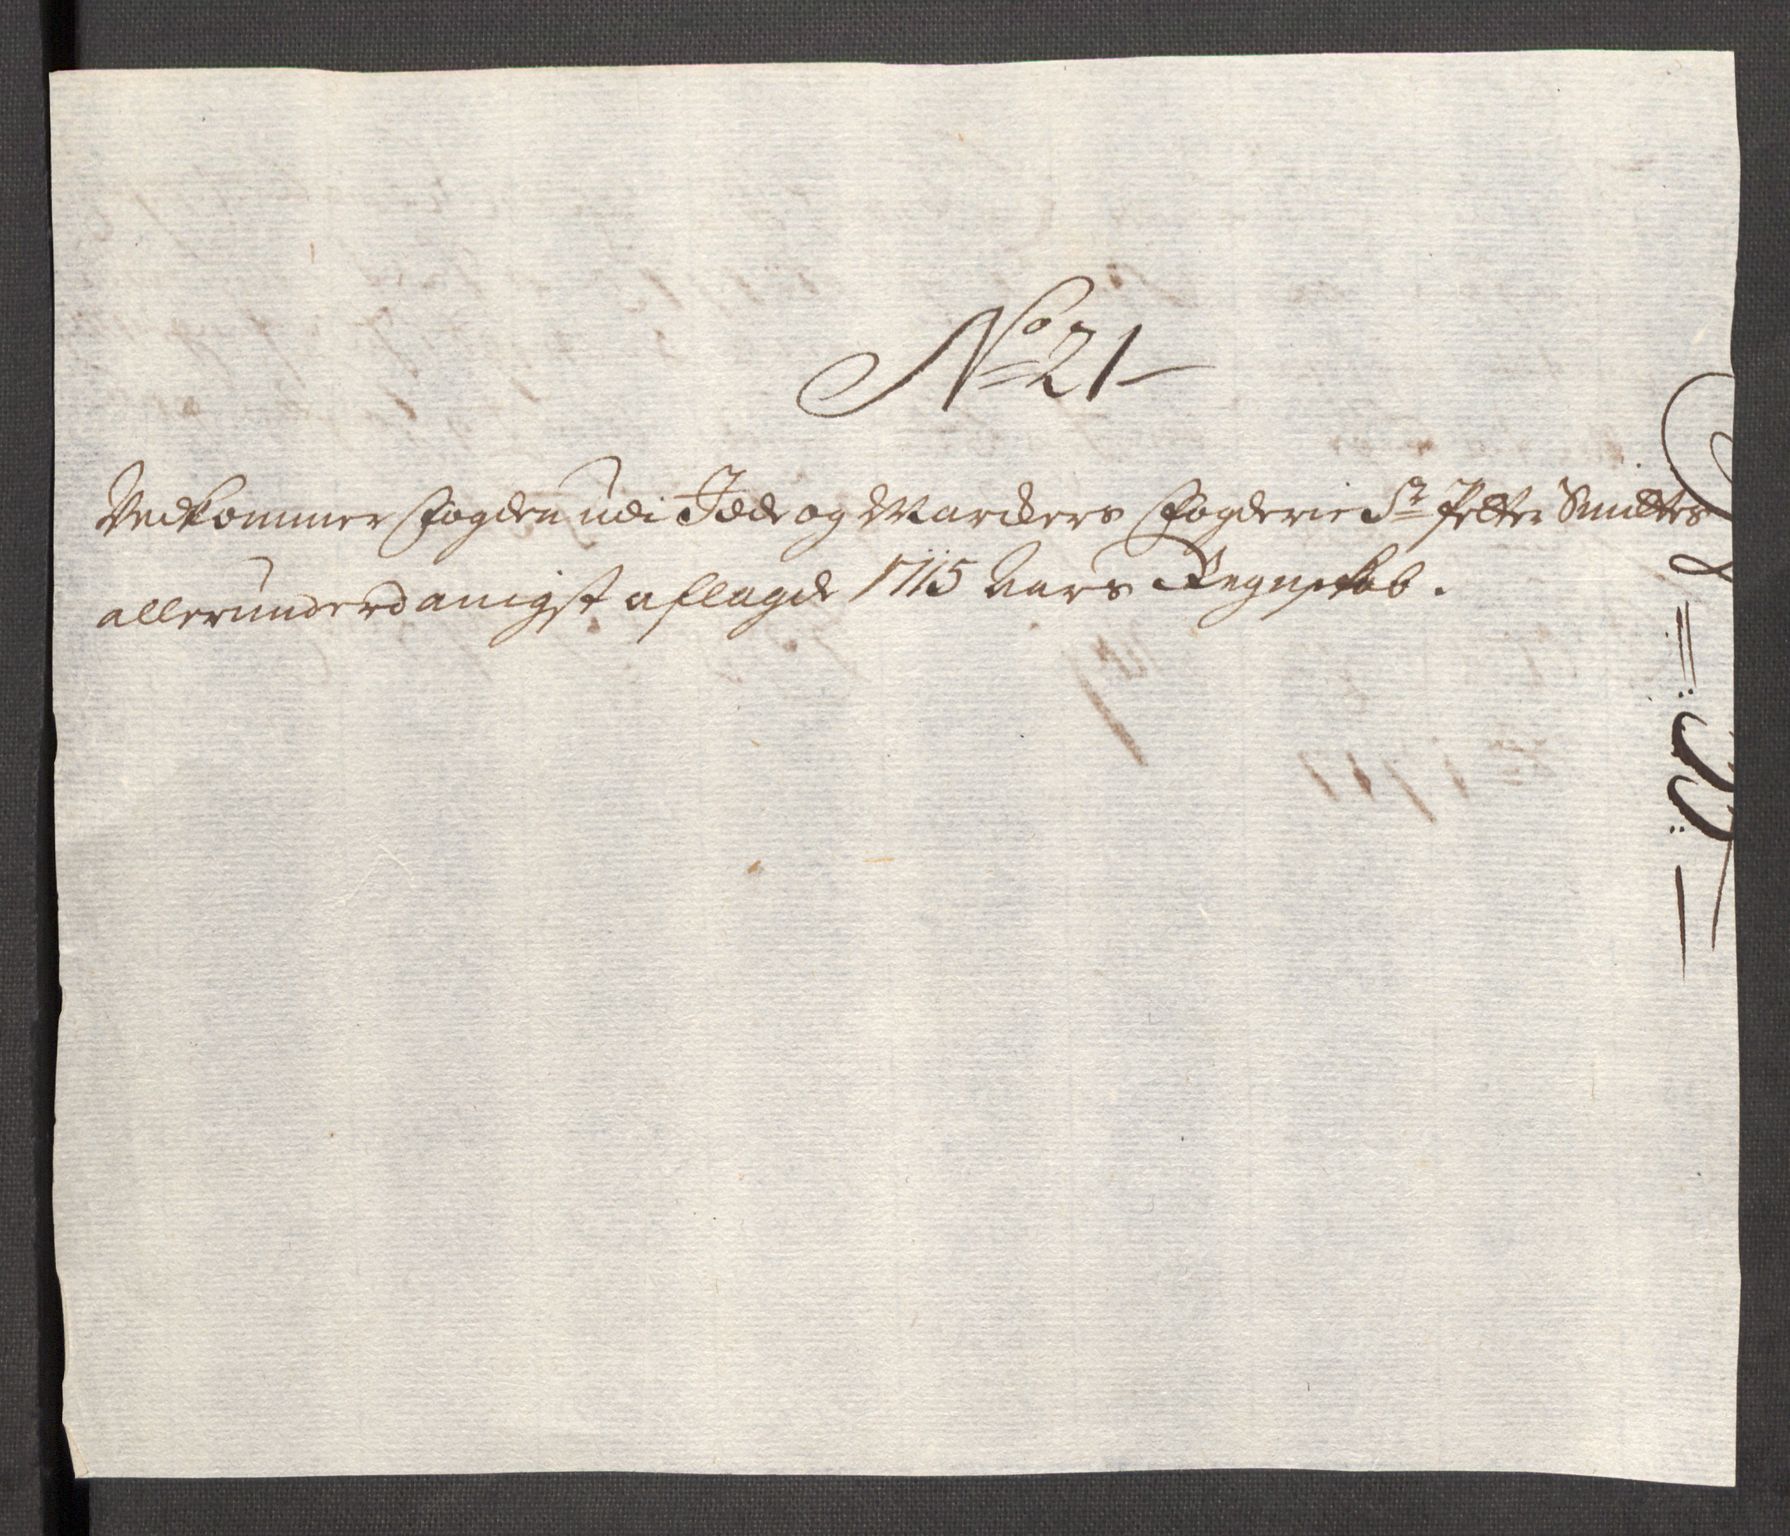 No 21
Vedkommer fogden udi Idde og Marckers fogderie Sr Petter Smittes
allerunderdanigst aflagde 1715 Aars Regnskab.